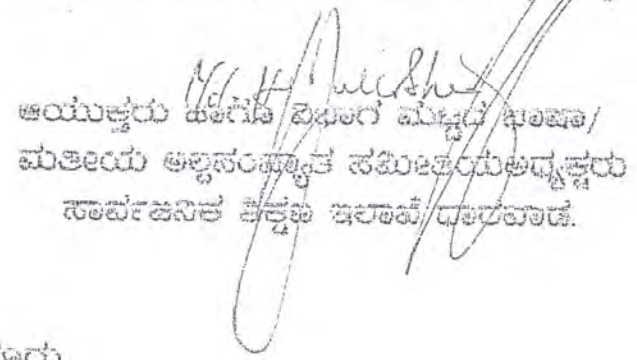 ಆಯುಕ್ತರು ಹಾಗೂ ವಿಭಾಗ ಮಟ್ಟದ ಭಾಷಾ/
ಮತೀಯ ಅಲ್ಪಸಂಖ್ಯಾತ ಸಮಿತಿಯಅಧ್ಯಕ್ಷರು
ಸಾರ್ವಜನಿಕ ಶಿಕ್ಷಣ ಇಲಾಖೆ ಧಾರವಾಡ.